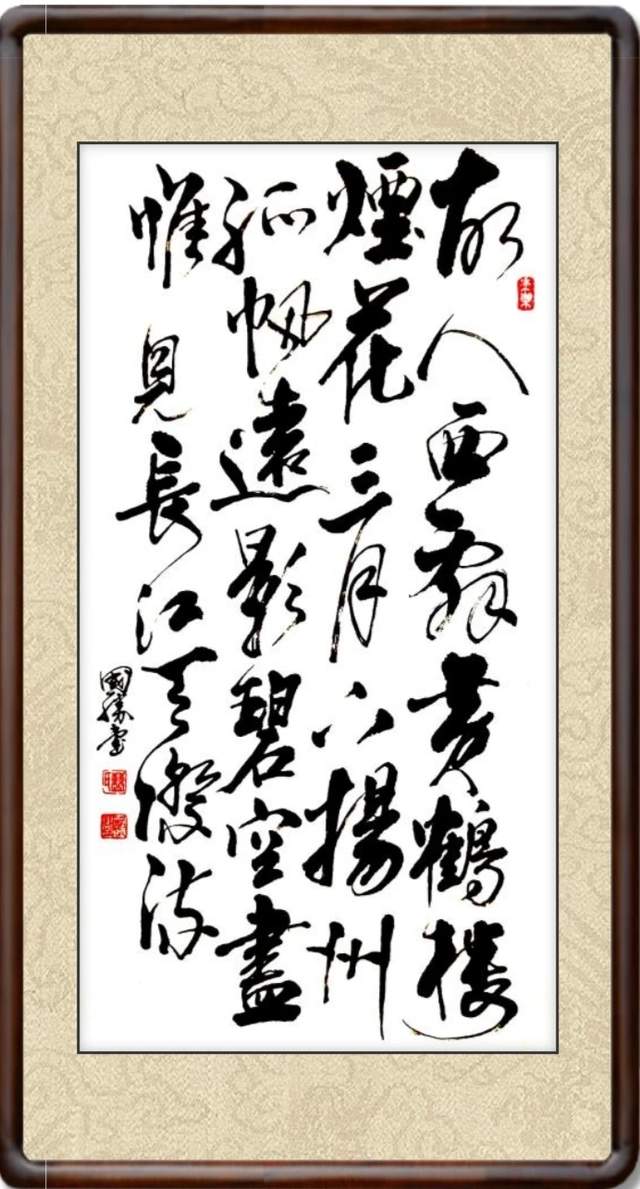 故人西辭黃鶴樓
煙花三月下揚州
孤帆遠影碧空盡
惟見長江天際流
國勝書